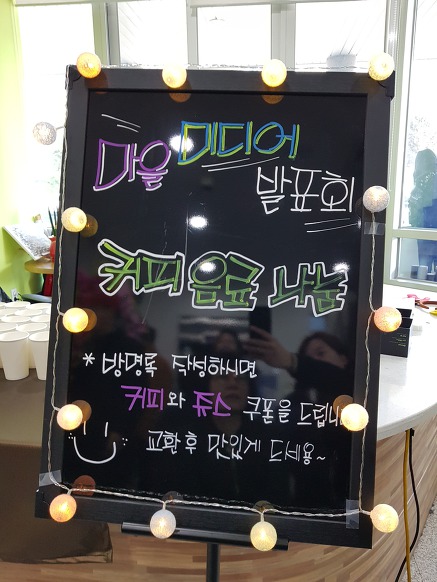 마을 미디어
발표회
커피 음료 나눔
* 방명록 작성하시면
커피와 쥬스 쿠폰을 드립니
교환 후 맛있게 드세용~